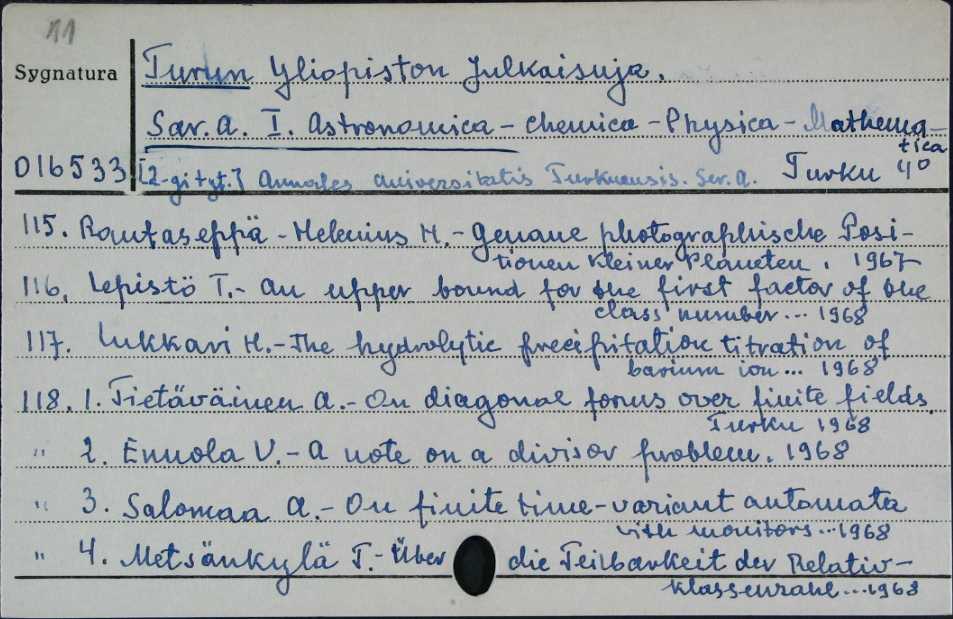 11
Sygnatura
Turun Yliopiston Julkaisuja.
Sar. A. I. Astronomica - Chemica - Physica - Mathema-
tica
D16533 [2-gi tyt.] Annales Universitatis Turkuensis. Ser. A. Turku 4°
115. Rautaseppä - Helenius H. - Genaue photographische Posi-
tionen Kleiner Planeten. 1967
116. Lepistö T. - An upper bound for the first factor of the
class number... 1968
117. Lukkari H. - The hydrolytic precipitation titration of
barium ion... 1968
118. 1. Tietäväinen A. - On diagonal forms over finite fields.
Turku 1968
" 2. Ennola V. - A note on a divisor problem. 1968
" 3. Salomaa A. - On finite time-variant automata
with monitors... 1968
" 4. Metsänkylä T. - Über die Teilbarkeit der Relativ-
klassenzahl... 1968